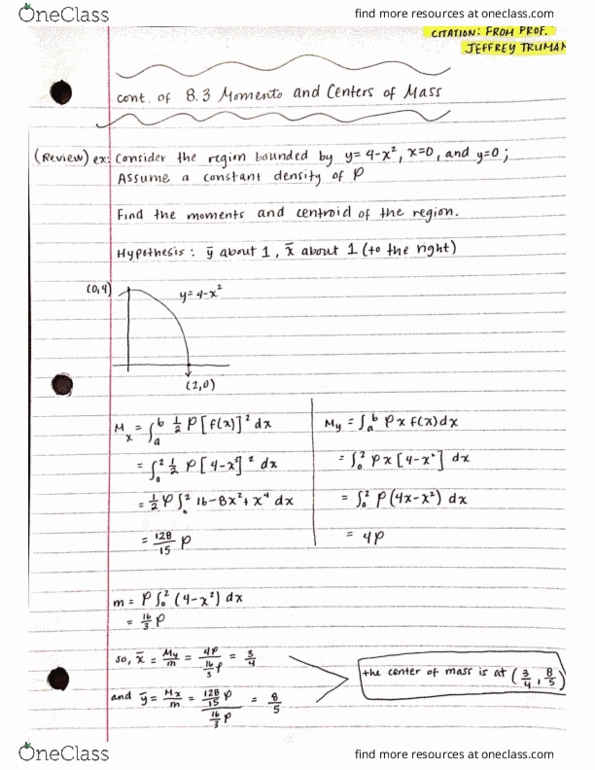 OneClass
find more resources at oneclass.com
CITATION: FROM PROF.
JEFFREY TRUMAN
cont. of 8.3 Moments and Centers of Mass
(Review) ex: Consider the region bounded by y=4-x², x=0, and y=0;
Assume a constant density of ρ
Find the moments and centroid of the region.
Hypothesis: ȳ about 1, x̄ about 1 (to the right)
(0,4)
y=4-x²
(2,0)
Mx = ∫ₐᵇ ½ ρ [f(x)]² dx
= ∫₀² ½ ρ [4-x²]² dx
= ½ ρ ∫₀² 16-8x²+x⁴ dx
= 128/15 ρ
My = ∫ₐᵇ ρ x f(x) dx
= ∫₀² ρx [4-x²] dx
= ∫₀² ρ(4x-x²) dx
= 4ρ
m = ρ ∫₀² (4-x²) dx
= 16/3 ρ
so, x̄ = My/m = 4ρ / (16/3 ρ) = 3/4
and ȳ = Mx/m = (128/15 ρ) / (16/3 ρ) = 8/5
the center of mass is at (3/4, 8/5)
OneClass
find more resources at oneclass.com